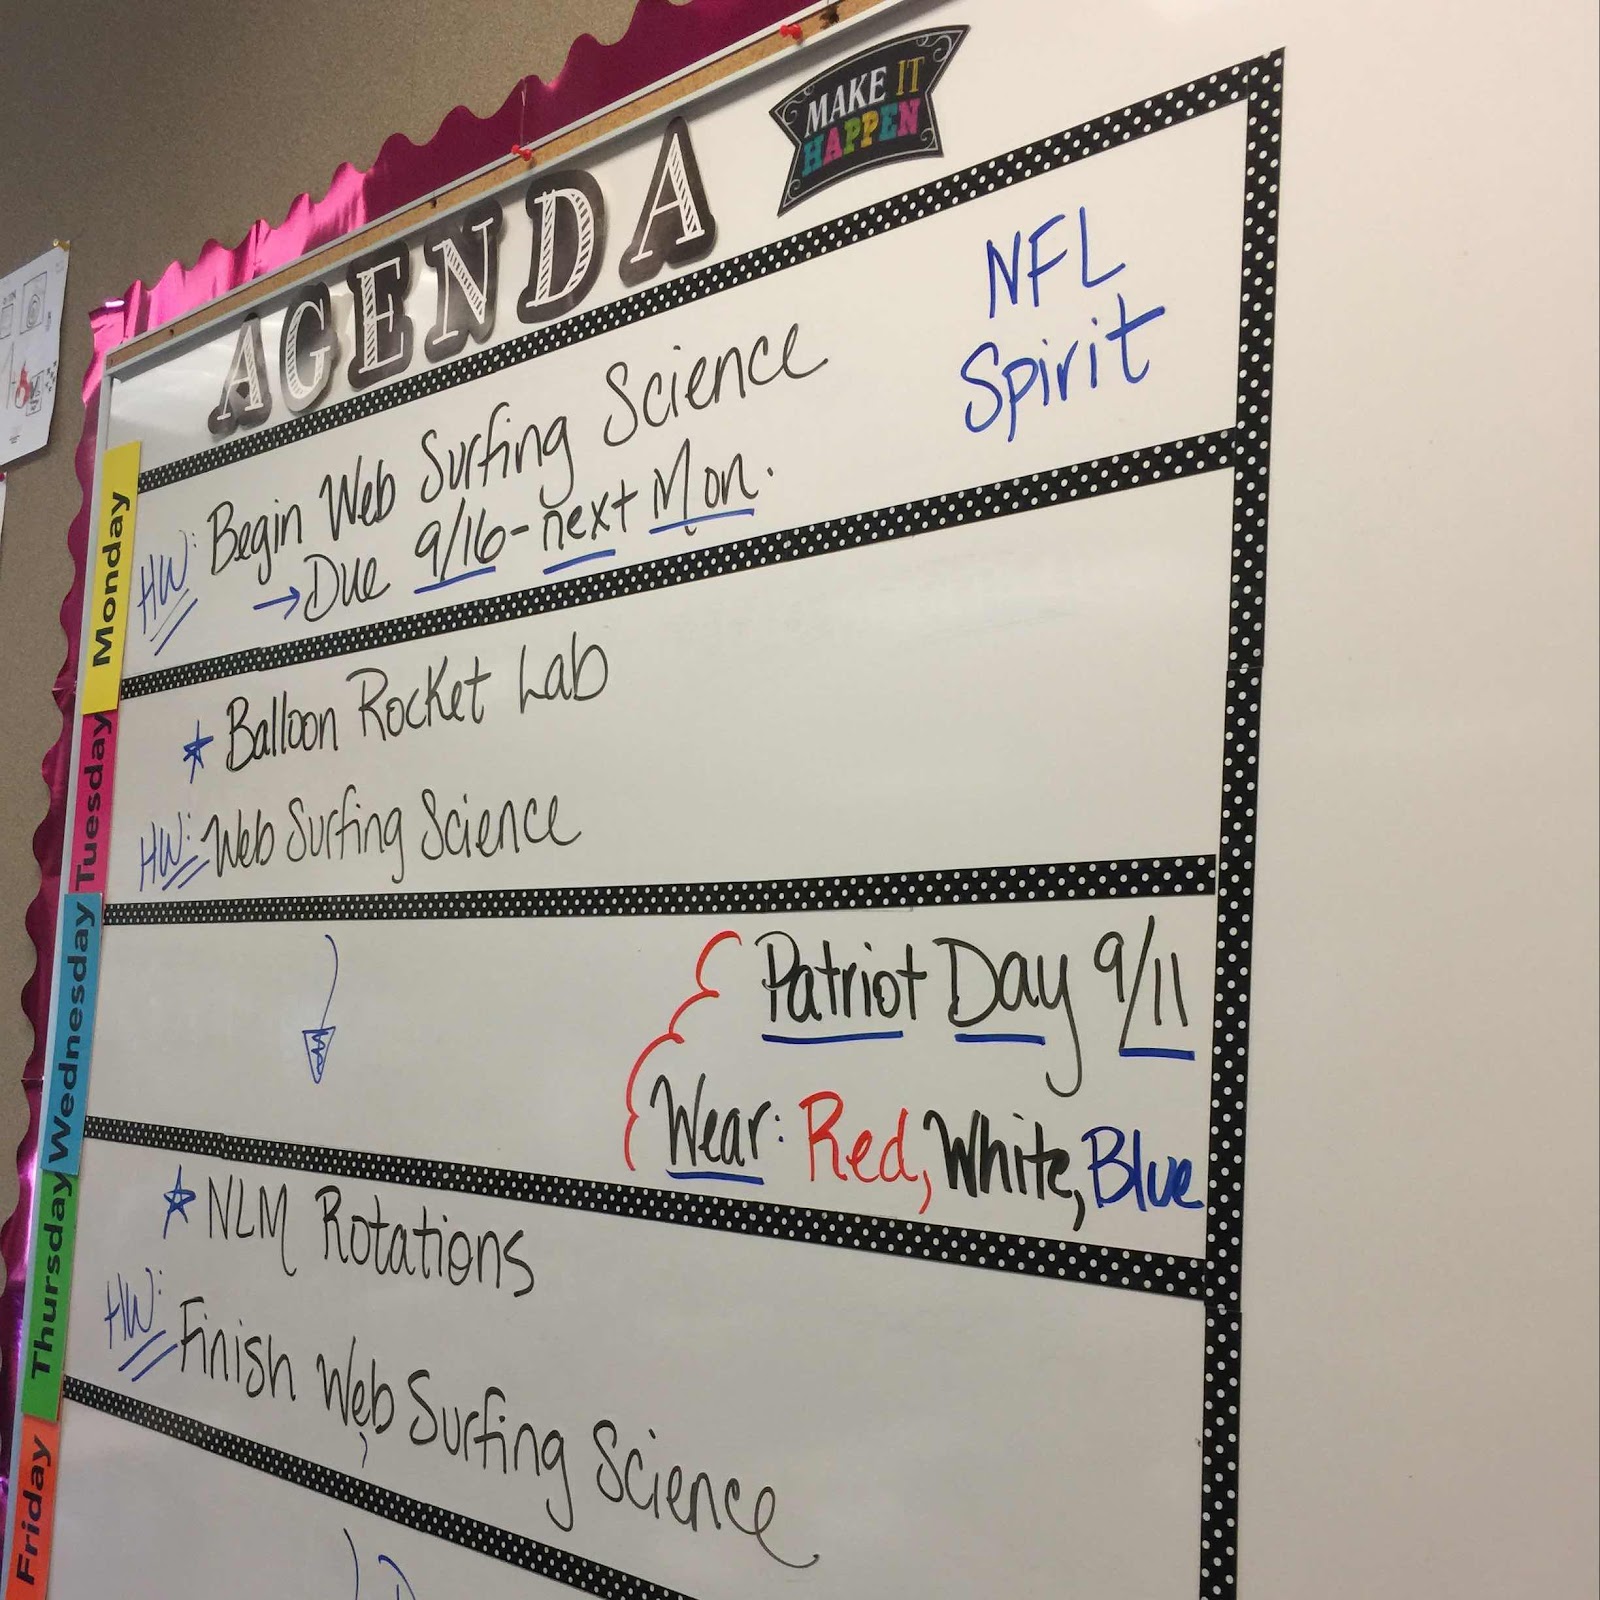 MAKE IT
HAPPEN
AGENDA
Monday
NFL
Spirit
HW: Begin Web Surfing Science
→ Due 9/16 - next Mon.
Tuesday
★ Balloon Rocket Lab
HW: Web Surfing Science
Wednesday
Patriot Day 9/11
Wear: Red, White, Blue
Thursday
★ NLM Rotations
HW: Finish Web Surfing Science
Friday